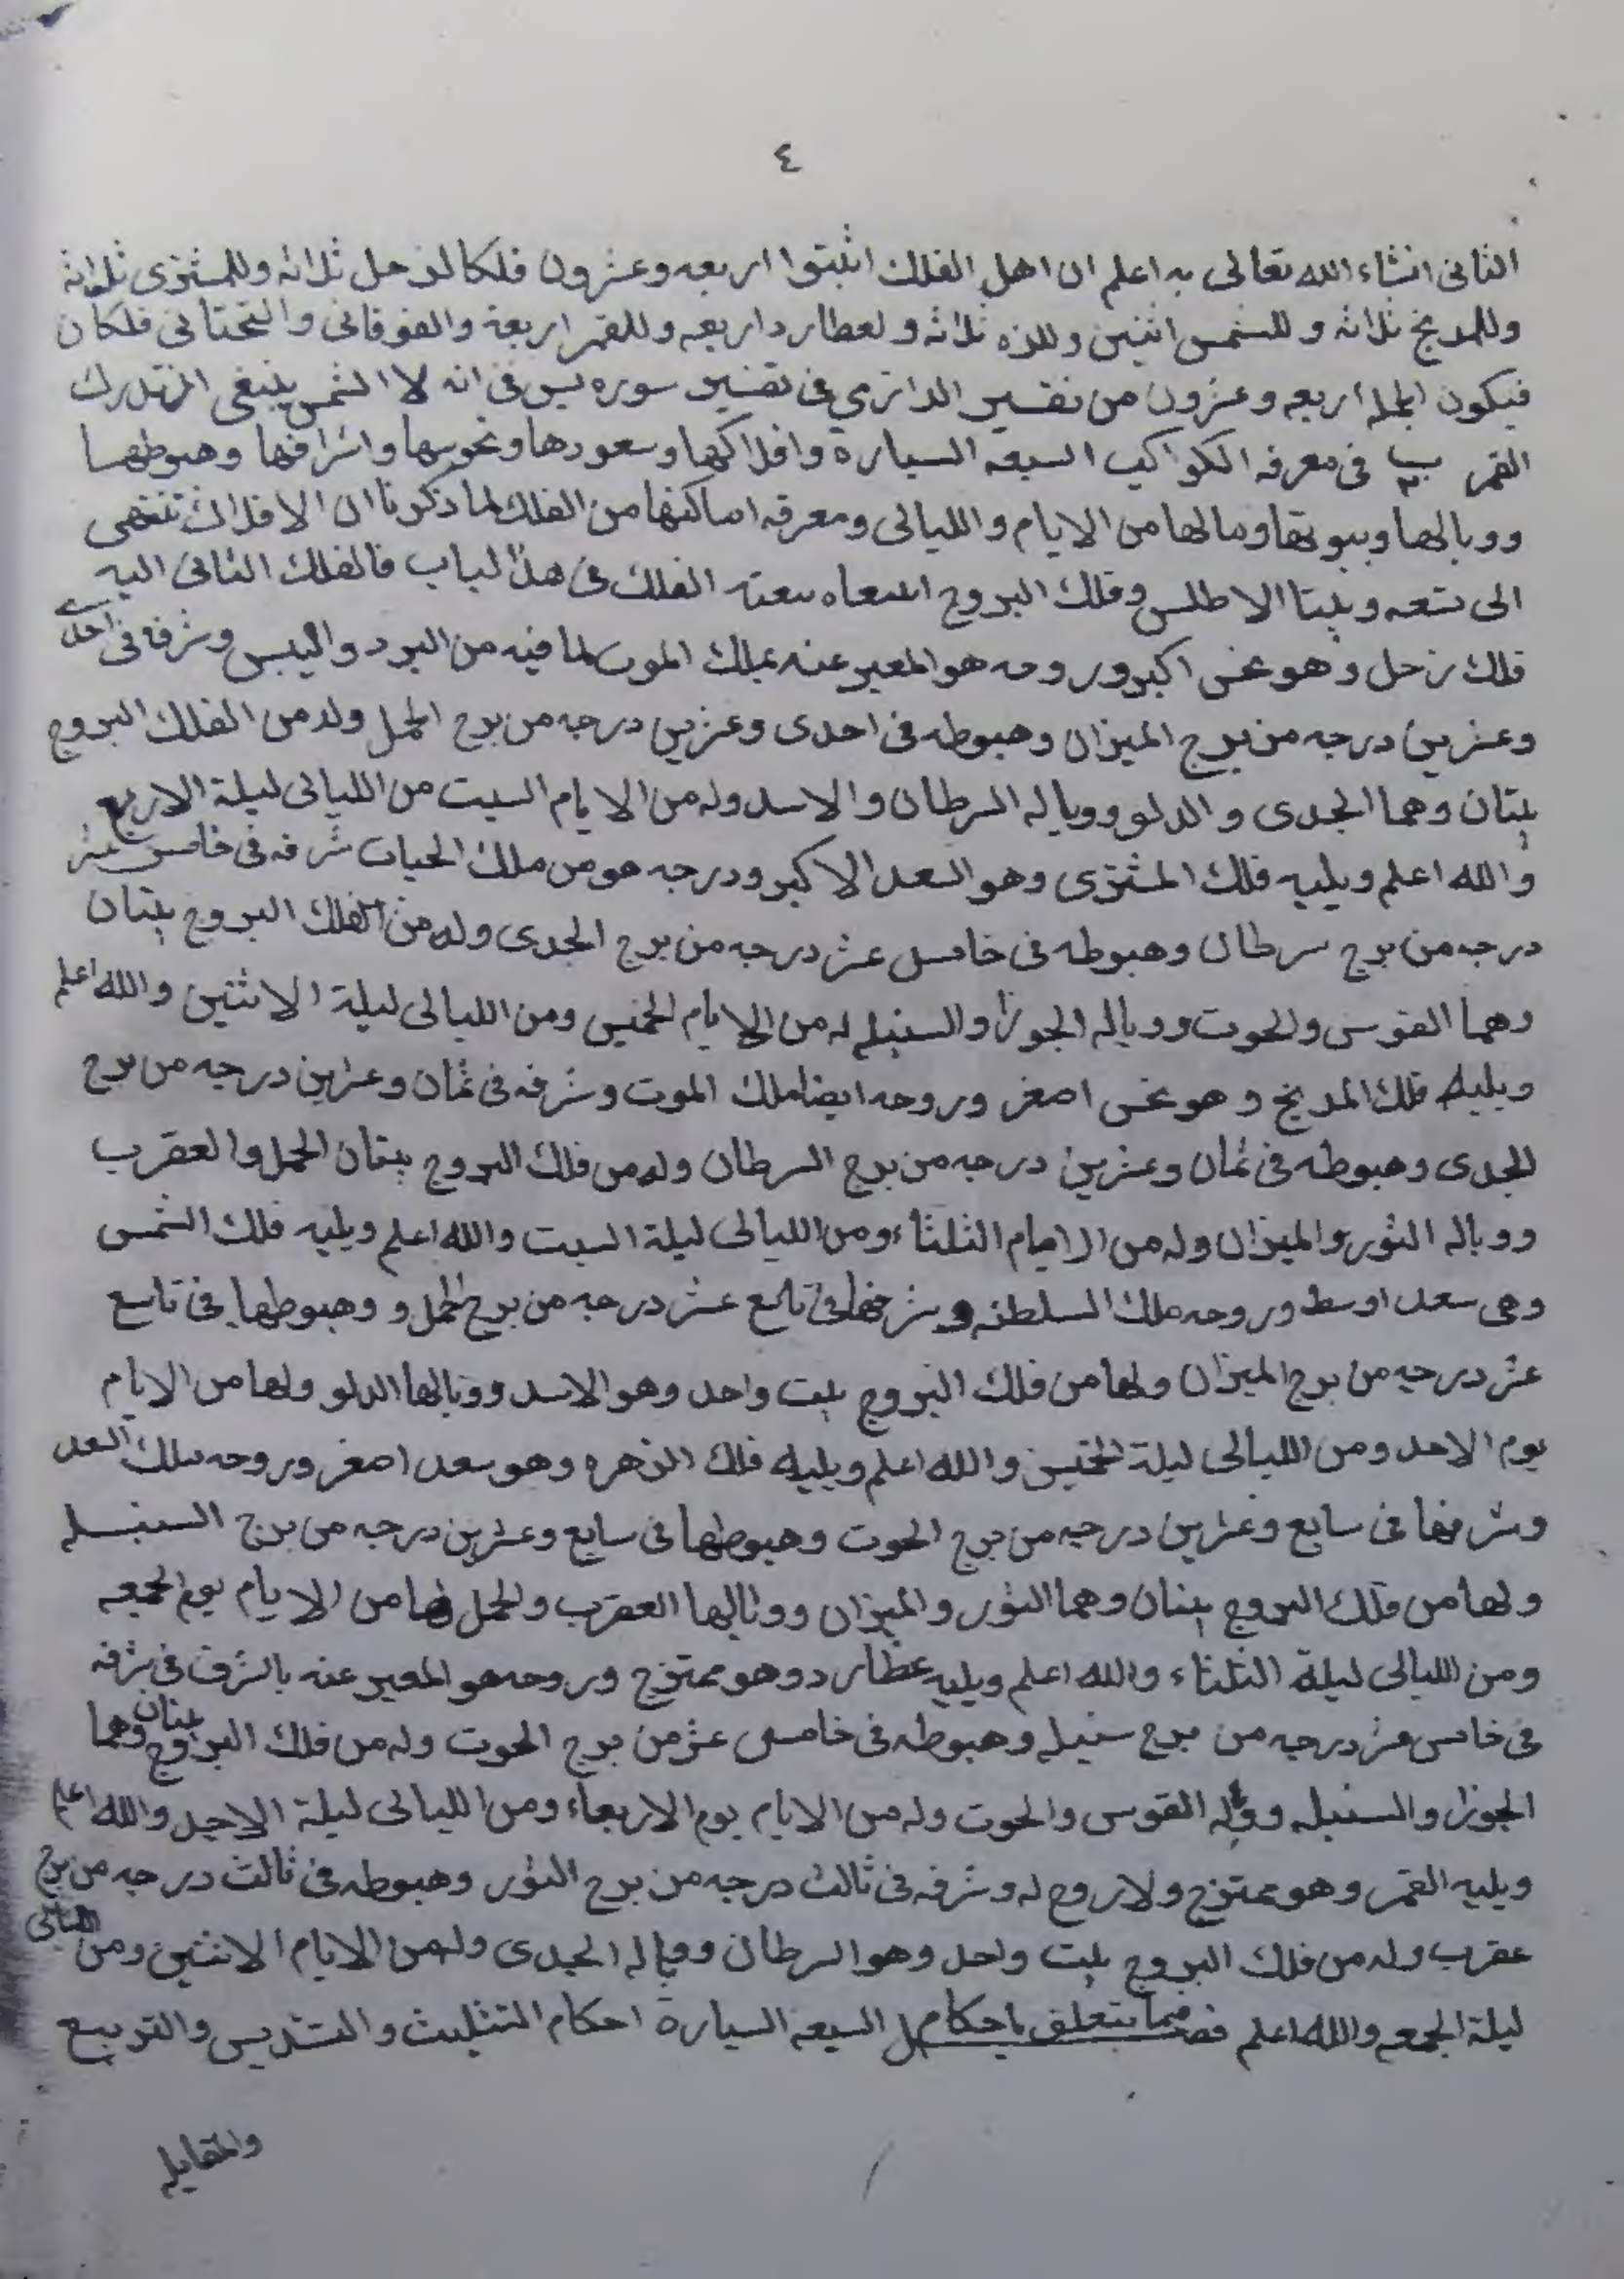 ٤
الثانى انشاء الله تعالى به اعلم ان اهل الفلك اثبتوا اربعه وعشرون فلكا لزحل ثلاثه وللمشترى ثلاثه
وللمريخ ثلاثه وللشمس اثنين وللزه ثلاثه ولعطارد اربعه وللقمر اربعة والفوقانى والتحتانى فلكان
فيكون الجمله اربعه وعشرون من تفسير الرازي فى تفسير سوره يس فى انه لا الشمس ينبغى ان تدرك
القمر فى معرفه الكواكب السبعه السيارة وافلاكها وسعودها ونحوسها واشرافها وهبوطها
ووبالها وبيوتها وما لها من الايام والليالى ومعرفه اماكنها من الفلك لما ذكرنا ان الافلاك تنتهى
الى تسعه وبينا الاطلس وفلك البروج الفلك فى هذا لباب فالفلك الثانى اليه
فلك زحل وهو نحس اكبر وروحه هو المعبر عنه بملك الموت لما فيه من البرد واليبس وشرفه فى احدى
وعشرين درجه من برج الميزان وهبوطه فى احدى وعشرين درجه من برج الحمل وله من الفلك البروج
بيتان وهما الجدى والدلو ووباله السرطان والاسد وله من الايام السبت من الليالى ليلة الاربع
والله اعلم ويليه فلك المشترى وهو السعد الاكبر ودرجه هو من ملك الحيات شرفه فى خامس عشر
درجه من برج سرطان وهبوطه فى خامس عشر درجه من برج الجدى وله من الفلك البروج بيتان
وهما القوس والحوت ووباله الجوزا والسنبله له من الايام الخميس ومن الليالى ليلة الاثنين والله اعلم
ويليه فلك المريخ وهو نحس اصغر وروحه ايضا ملك الموت وشرفه فى ثمان وعشرين درجه من برج
الجدى وهبوطه فى ثمان وعشرين درجه من برج السرطان وله من فلك البروج بيتان الحمل والعقرب
ووباله الثور والميزان وله من الايام الثلثاء ومن الليالى ليلة السبت والله اعلم ويليه فلك الشمس
وهى سعد اوسط وروحه ملك السلطنه وشرفها فى تاسع عشر درجه من برج الحمل و وهبوطها فى تاسع
عشر درجه من برج الميزان ولها من فلك البروج بيت واحد وهو الاسد ووبالها الدلو ولها من الايام
يوم الاحد ومن الليالى ليلة الخميس والله اعلم ويليه فلك الزهره وهو سعد اصغر وروحه ملك السعد
وشرفها فى سابع وعشرين درجه من برج الحوت وهبوطها فى سابع وعشرين درجه من برج السنبله
ولها من فلك البروج بيتان وهما الثور والميزان ووبالها العقرب والحمل لها من الايام يوم الجمعه
ومن الليالى ليلة الثلثاء والله اعلم ويليه عطارد وهو ممتزج وروحه هو المعبر عنه بالشرف فى شرفه
فى خامس عشر درجه من برج سنبله وهبوطه فى خامس عشر من برج الحوت وله من فلك البروج بيتان وهما
الجوزا والسنبله ووباله القوس والحوت وله من الايام يوم الاربعاء ومن الليالى ليلة الاحد والله اعلم
ويليه القمر وهو ممتزج ولا روح له وشرفه فى ثالث درجه من برج الثور وهبوطه فى ثالث درجه من برج
عقرب وله من فلك البروج بيت واحد وهو السرطان ووباله الجدى وله من الايام الاثنين ومن الليالى
ليلة الجمعه والله اعلم فصل مما يتعلق باحكام السبعه السيارة احكام التثليث والتسديس والتربيع
والمقابله